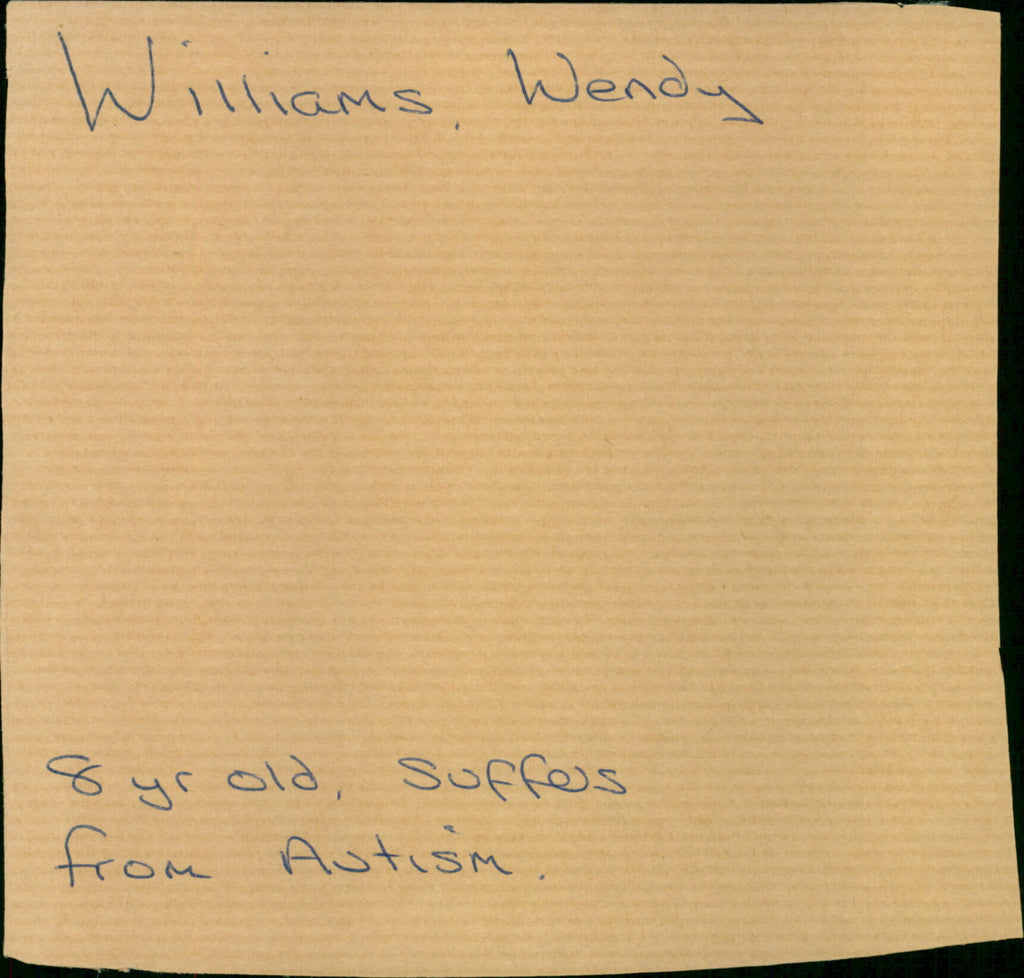 Williams, Wendy
8 yr old, Suffers
from Autism.